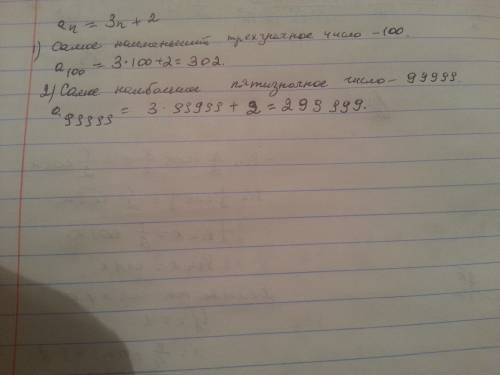 aₙ = 3n + 2
1) Самое наименьший трехзначное число – 100.
a₁₀₀ = 3·100+2 = 302.
2) Самое наибольшое пятизначное число – 99999
a₉₉₉₉₉ = 3·99999 + 2 = 299 999.